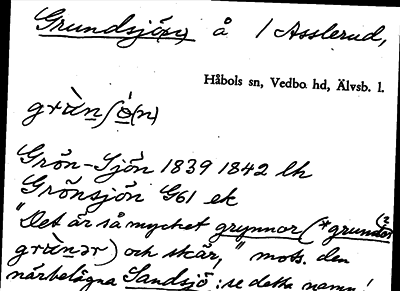 Grundsjö(n) å / Asslerud,
Håbols sn, Vedbo hd, Älvsb. l.
grùnʃö́(n)
Grön-Sjön 1839 1842 lh
Grönsjön G61 ek
"Det är så mycket grynnor (*grundor (?
grùnər) och skär," mots. den
närbelägna Sandsjö: se detta namn!